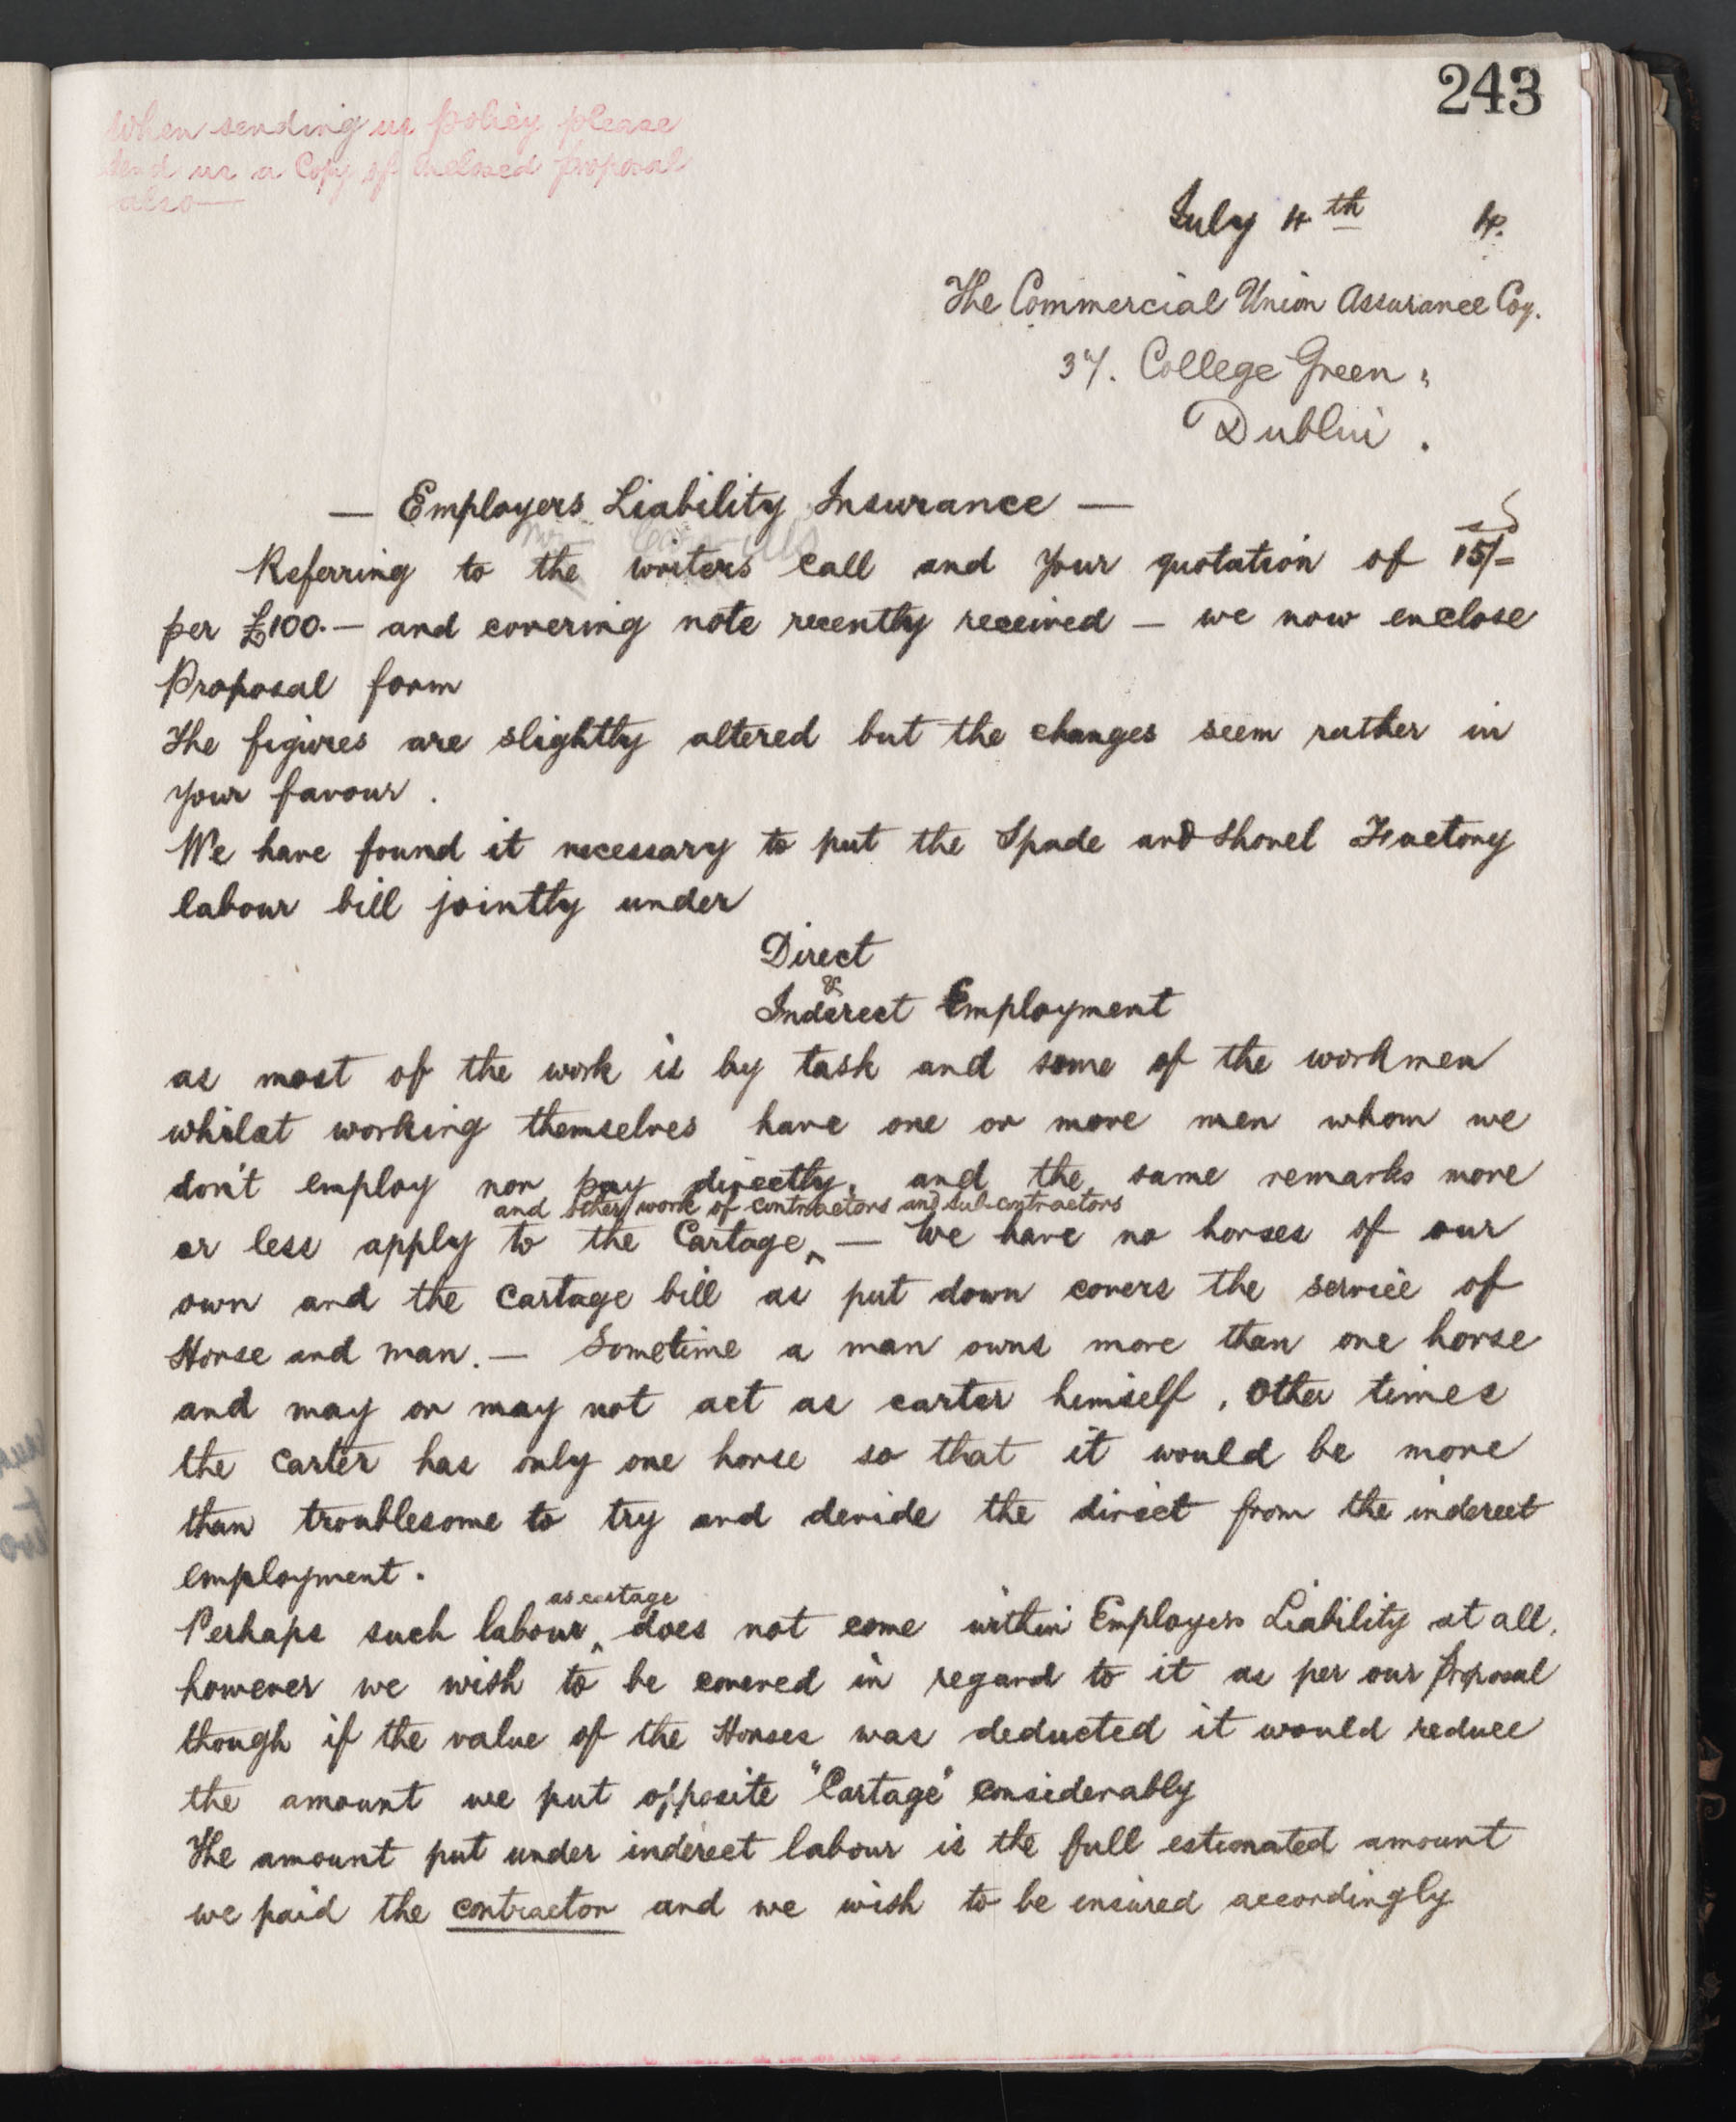 243
When sending us policy please
send us a Copy of Enclosed proposal
also —
July 4th 4.
The Commercial Union Assurance Coy.
37. College Green,
Dublin.
— Employers Liability Insurance —
Referring to the writers call and your quotation of 15/-
per £100.— and covering note recently received — we now enclose
Proposal form
The figures are slightly altered but the changes seem rather in
your favour.
We have found it necessary to put the Spade and Shovel Factory
labour bill jointly under
Direct
&
Inderect Employment
as most of the work is by task and some of the workmen
whilst working themselves have one or more men whom we
don't employ nor pay directly. and the same remarks more
and other work of contractors and sub-contractors
or less apply to the Cartage ^ — We have no horses of our
own and the cartage bill as put down covers the service of
Horse and man. — Sometime a man owns more than one horse
and may or may not act as carter himself. Other times
the carter has only one horse so that it would be more
than troublesome to try and devide the direct from the inderect
employment.
as cartage
Perhaps such labour ^ does not come within Employers Liability at all.
however we wish to be covered in regard to it as per our proposal
though if the value of the Horses was deducted it would reduce
the amount we put opposite "Cartage" considerably
The amount put under inderect labour is the full estimated amount
we paid the contractor and we wish to be insured accordingly